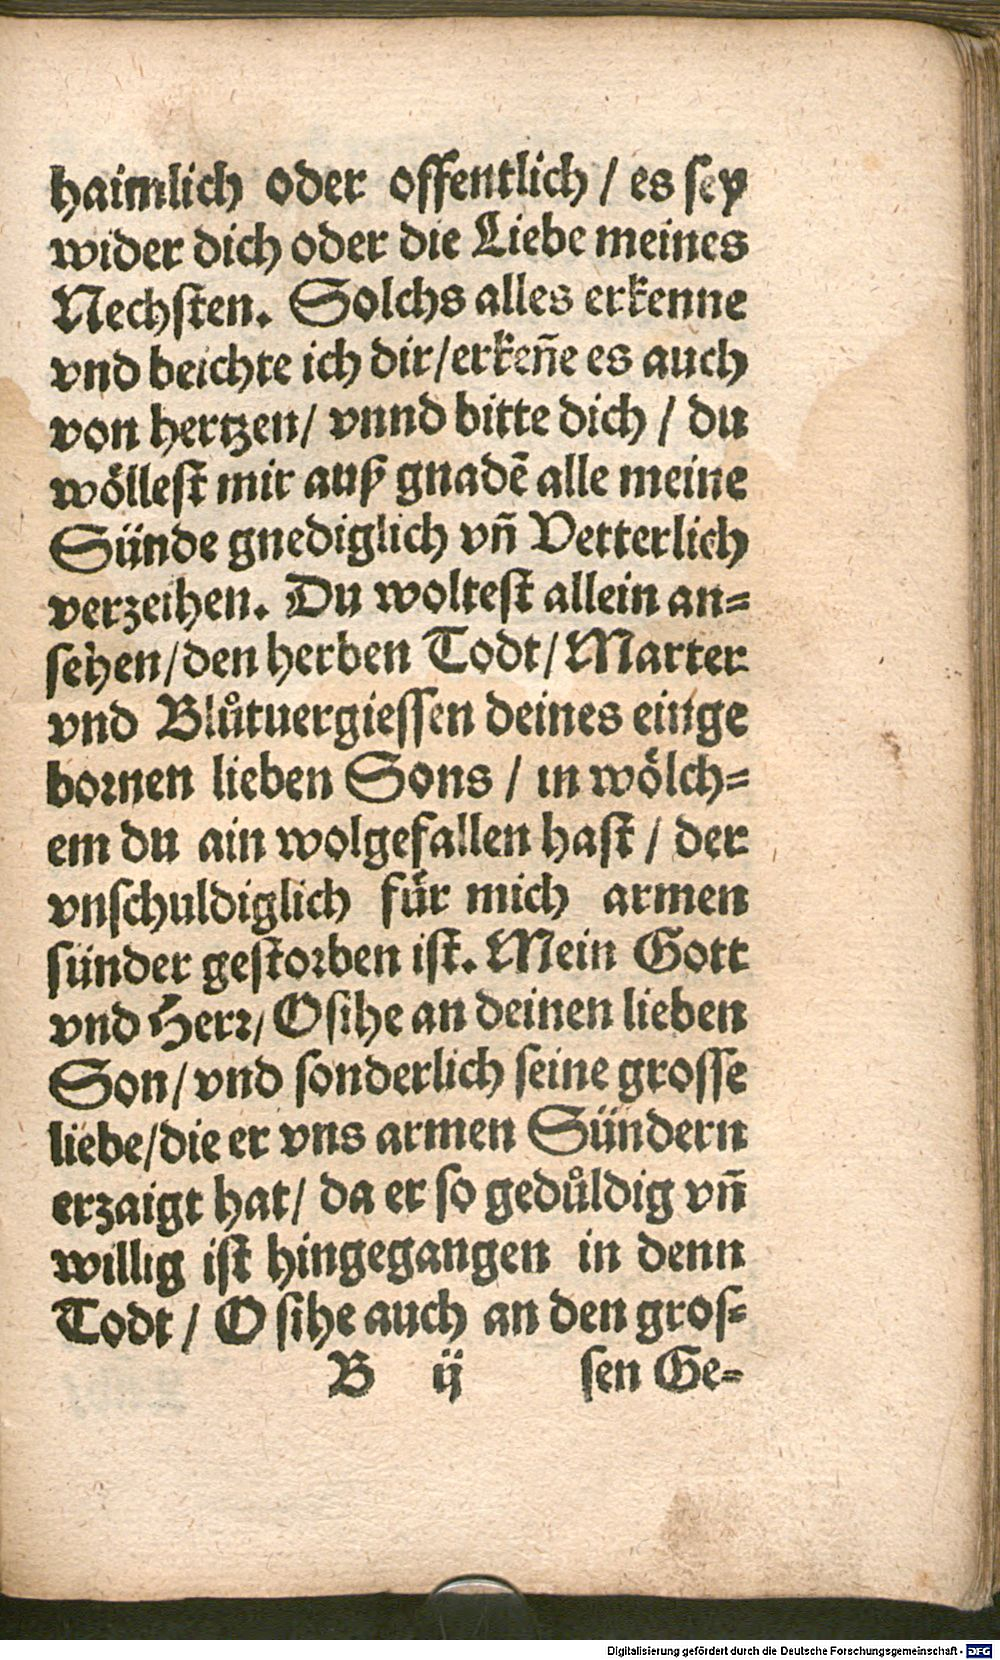 haimlich oder offentlich / es sey
wider dich oder die Liebe meines
Nechsten. Solchs alles erkenne
vnd beichte ich dir/erkeñe es auch
von hertzen/ vnnd bitte dich / du
wöllest mir auß gnadẽ alle meine
Sünde gnediglich vñ Vetterlich
verzeihen. Du woltest allein an-
sehen/den herben Todt/Marter
vnd Blůtuergiessen deines einge
bornen lieben Sons / in wölch-
em du ain wolgefallen hast / der
vnschuldiglich für mich armen
sünder gestorben ist. Mein Gott
vnd Herr/ O sihe an deinen lieben
Son/vnd sonderlich seine grosse
liebe/die er vns armen Sündern
erzaigt hat/ da er so gedůldig vñ
willig ist hingegangen in denn
Todt / O sihe auch an den gros-
B ij sen Ge-
Digitalisierung gefördert durch die Deutsche Forschungsgemeinschaft - DFG